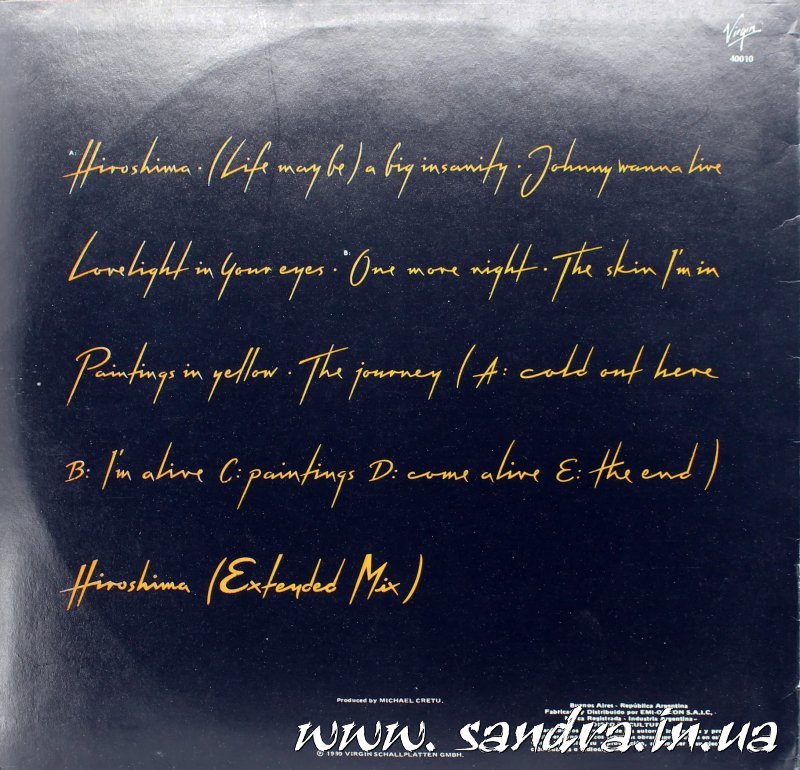 Virgin
40010
A:
Hiroshima · (Life may be) a big insanity · Johnny wanna live
Lovelight in your eyes · B: One more night · The skin I'm in
Paintings in yellow · The journey (A: cold out here
B: I'm alive C: paintings D: come alive E: the end)
Hiroshima (Extended Mix)
Produced by MICHAEL CRETU.
Buenos Aires - República Argentina
Fabricado y Distribuido por EMI-ODEON S.A.I.C.
Registrada - Industria Argentina -
www.sandra.ln.ua
VIRGIN SCHALLPLATTEN GMBH.